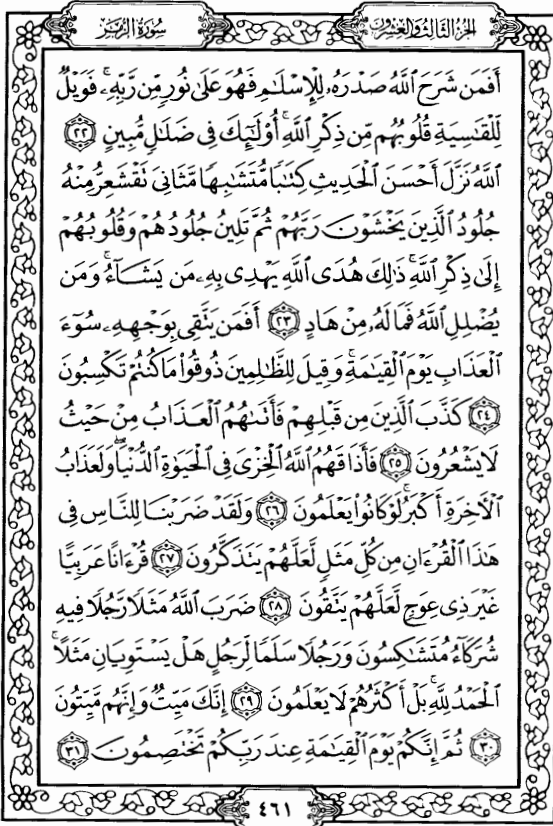 سُورَةُ الزُّمَرِ
الجُزْءُ الثَّالِثُ وَالعِشْرُونَ
أَفَمَن شَرَحَ ٱللَّهُ صَدْرَهُۥ لِلْإِسْلَـٰمِ فَهُوَ عَلَىٰ نُورٍ مِّن رَّبِّهِۦ ۚ فَوَيْلٌ
لِّلْقَـٰسِيَةِ قُلُوبُهُم مِّن ذِكْرِ ٱللَّهِ ۚ أُو۟لَـٰٓئِكَ فِى ضَلَـٰلٍ مُّبِينٍ ٢٢
ٱللَّهُ نَزَّلَ أَحْسَنَ ٱلْحَدِيثِ كِتَـٰبًا مُّتَشَـٰبِهًا مَّثَانِىَ تَقْشَعِرُّ مِنْهُ
جُلُودُ ٱلَّذِينَ يَخْشَوْنَ رَبَّهُمْ ثُمَّ تَلِينُ جُلُودُهُمْ وَقُلُوبُهُمْ
إِلَىٰ ذِكْرِ ٱللَّهِ ۚ ذَٰلِكَ هُدَى ٱللَّهِ يَهْدِى بِهِۦ مَن يَشَآءُ ۚ وَمَن
يُضْلِلِ ٱللَّهُ فَمَا لَهُۥ مِنْ هَادٍ ٢٣ أَفَمَن يَتَّقِى بِوَجْهِهِۦ سُوٓءَ
ٱلْعَذَابِ يَوْمَ ٱلْقِيَـٰمَةِ ۚ وَقِيلَ لِلظَّـٰلِمِينَ ذُوقُوا۟ مَا كُنتُمْ تَكْسِبُونَ
٢٤ كَذَّبَ ٱلَّذِينَ مِن قَبْلِهِمْ فَأَتَىٰهُمُ ٱلْعَذَابُ مِنْ حَيْثُ
لَا يَشْعُرُونَ ٢٥ فَأَذَاقَهُمُ ٱللَّهُ ٱلْخِزْىَ فِى ٱلْحَيَوٰةِ ٱلدُّنْيَا ۖ وَلَعَذَابُ
ٱلْـَٔاخِرَةِ أَكْبَرُ ۚ لَوْ كَانُوا۟ يَعْلَمُونَ ٢٦ وَلَقَدْ ضَرَبْنَا لِلنَّاسِ فِى
هَـٰذَا ٱلْقُرْءَانِ مِن كُلِّ مَثَلٍ لَّعَلَّهُمْ يَتَذَكَّرُونَ ٢٧ قُرْءَانًا عَرَبِيًّا
غَيْرَ ذِى عِوَجٍ لَّعَلَّهُمْ يَتَّقُونَ ٢٨ ضَرَبَ ٱللَّهُ مَثَلًا رَّجُلًا فِيهِ
شُرَكَآءُ مُتَشَـٰكِسُونَ وَرَجُلًا سَلَمًا لِّرَجُلٍ هَلْ يَسْتَوِيَانِ مَثَلًا ۚ
ٱلْحَمْدُ لِلَّهِ ۚ بَلْ أَكْثَرُهُمْ لَا يَعْلَمُونَ ٢٩ إِنَّكَ مَيِّتٌ وَإِنَّهُم مَّيِّتُونَ
٣٠ ثُمَّ إِنَّكُمْ يَوْمَ ٱلْقِيَـٰمَةِ عِندَ رَبِّكُمْ تَخْتَصِمُونَ ٣١
٤٦١